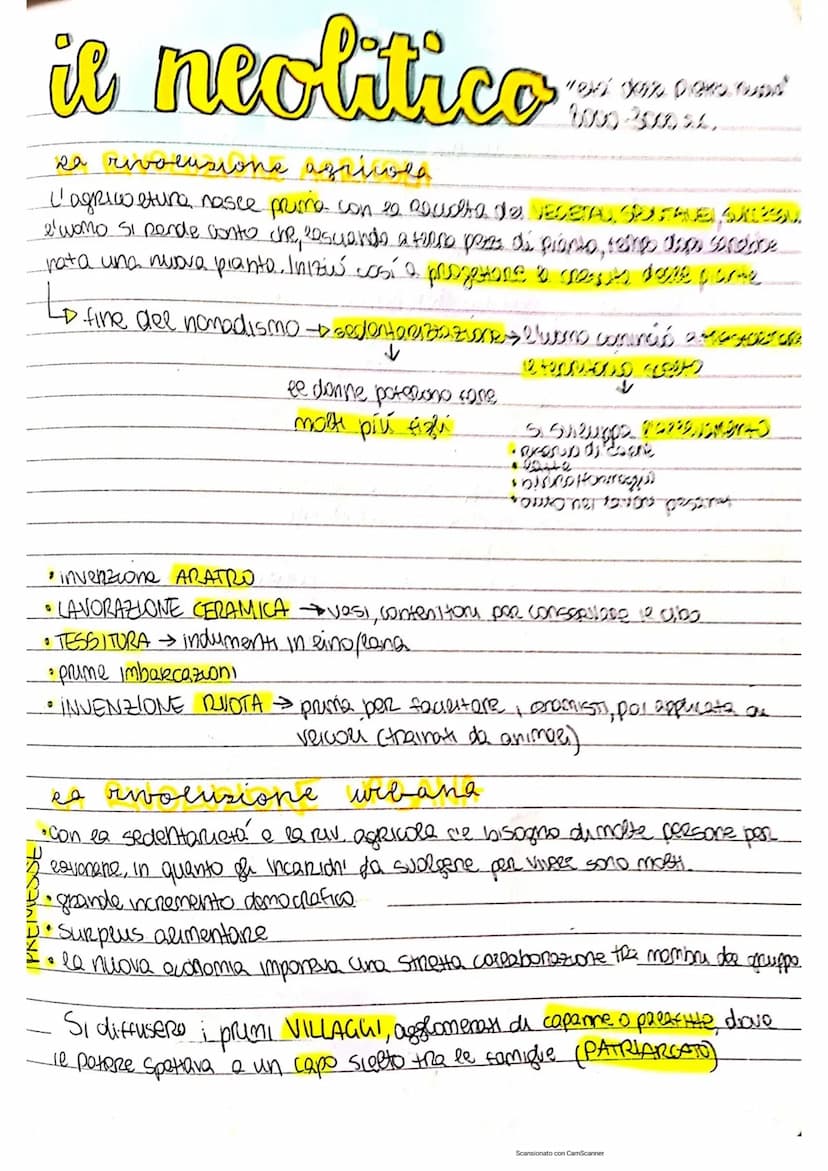 il neolitico
"età della pietra nuova"
8000-3000 a.C.
la rivoluzione agricola
L'agricoltura nasce prima con la raccolta dei VEGETALI SPONTANEI,
l'uomo si rende conto che, lasciando a terra pezzi di pianta, tempo dopo sarebbe
nata una nuova pianta. Iniziò così a progettare la crescita delle piante
fine del nomadismo → sedentarizzazione → l'uomo cominciò a
il territorio scelto
le donne poterono fare
molti più figli
si sviluppa l'allevamento
• di carne
• latte
• 
• aiuto nei lavori pesanti
• invenzione ARATRO
• LAVORAZIONE CERAMICA → vasi, contenitori per conservare il cibo
• TESSITURA → indumenti in lino/lana
• prime imbarcazioni
• INVENZIONE RUOTA → prima per facilitare i ceramisti, poi applicata ai
veicoli (trainati da animali)
la rivoluzione urbana
PREMESSE
• con la sedentarietà e la riv. agricola c'è bisogno di molte persone per
lavorare, in quanto gli incarichi da svolgere per vivere sono molti.
• grande incremento demografico
• surplus alimentare
• la nuova economia imponeva una stretta collaborazione tra membri del gruppo
Si diffusero i primi VILLAGGI, agglomerati di capanne o palafitte, dove
il potere spettava a un capo scelto tra le famiglie (PATRIARCATO)
Scansionato con CamScanner